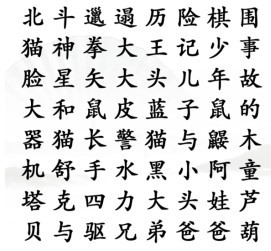 北斗邋遢历险棋围
猫神拳大王记少事
脸星矢大头儿年故
大和鼠皮蓝子鼠的
器猫长警猫与鼹木
机舒手水黑小阿童
塔克四力大头娃芦
贝与驱兄弟爸爸葫